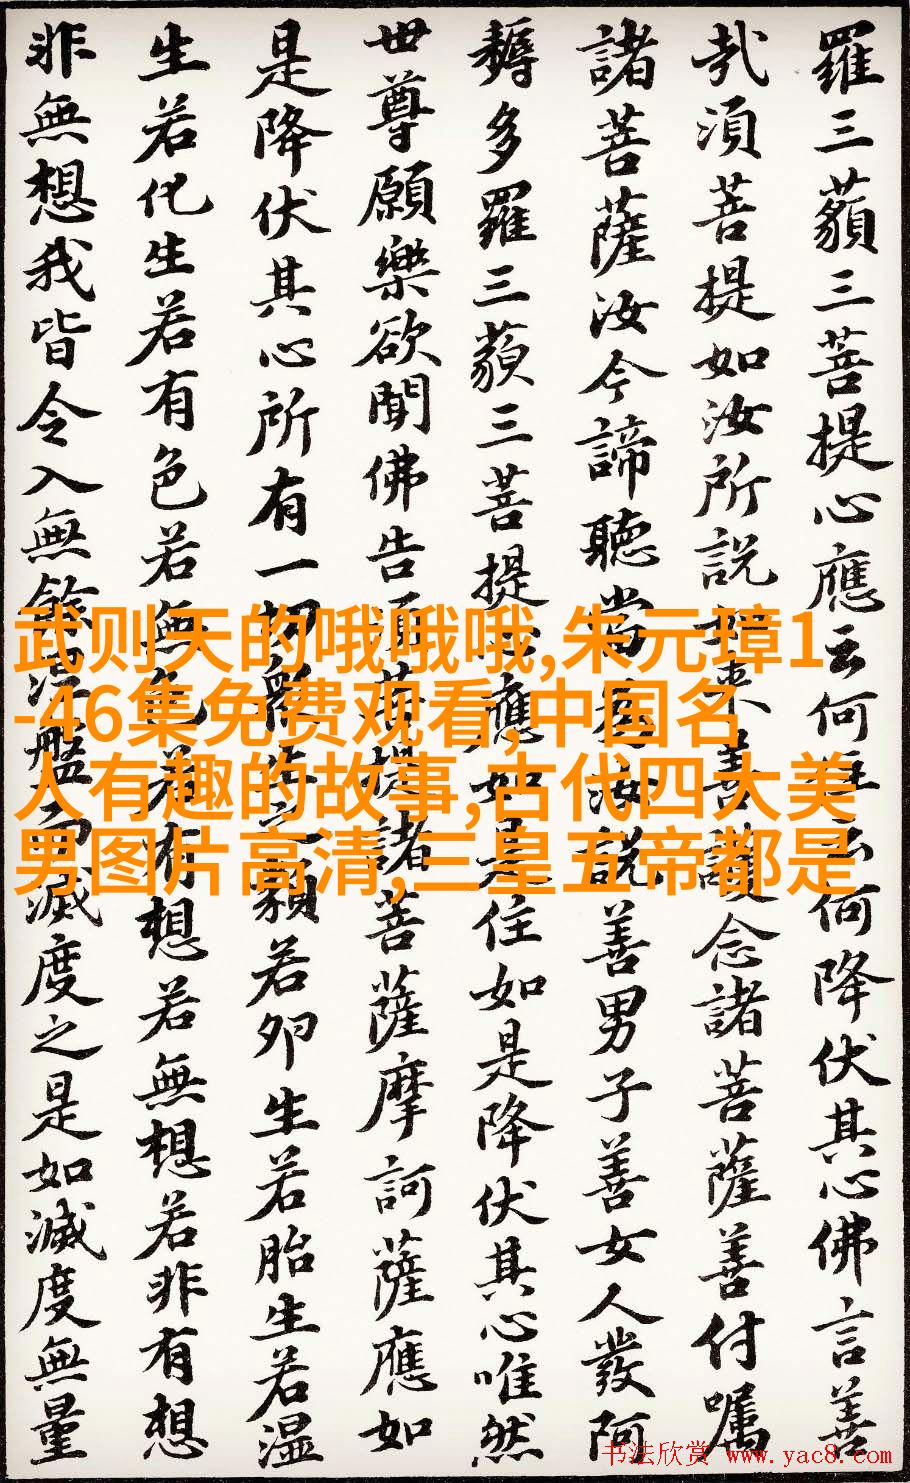 羅三藐三菩提心應云何住云何降伏其心佛言善
哉須菩提如汝所説如來善護念諸菩薩善付囑
諸菩薩汝今諦聽當為汝説善男子善女人發阿
耨多羅三藐三菩提心應如是住如是降伏其心唯然
世尊願樂欲聞佛告須菩提諸菩薩摩訶薩應如
是降伏其心所有一切衆生之類若卵生若胎生若湿
生若化生若有色若無色若有想若無想若非有想
非無想我皆令入無餘涅槃而滅度之是如滅度無量
武则天的哦哦哦,朱元璋1
-46集免费观看,中国名
人有趣的故事,古代四大美
男图片高清,三皇五帝都是
书法欣赏 www.yac8.com